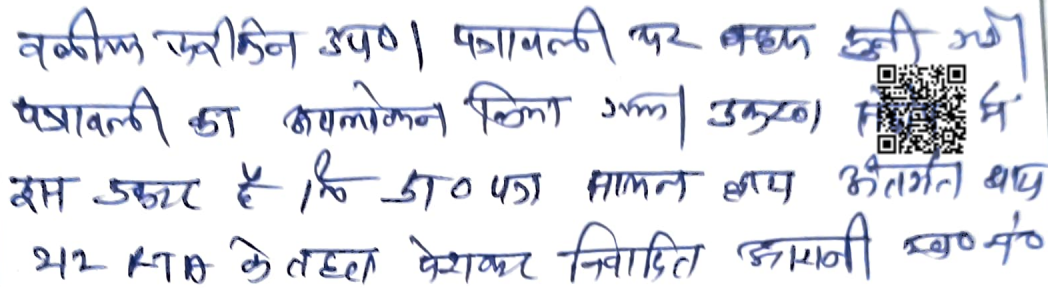 वकील फरीकेन उप०। पत्रावली पर बहस सुनी गयी।
पत्रावली का अवलोकन किया गया। प्रकरण में
इस प्रकार है कि प्रा० पत्र अंतर्गत धारा
212 RTA के तहत पेशकर विवादित आराजी ख० नं०